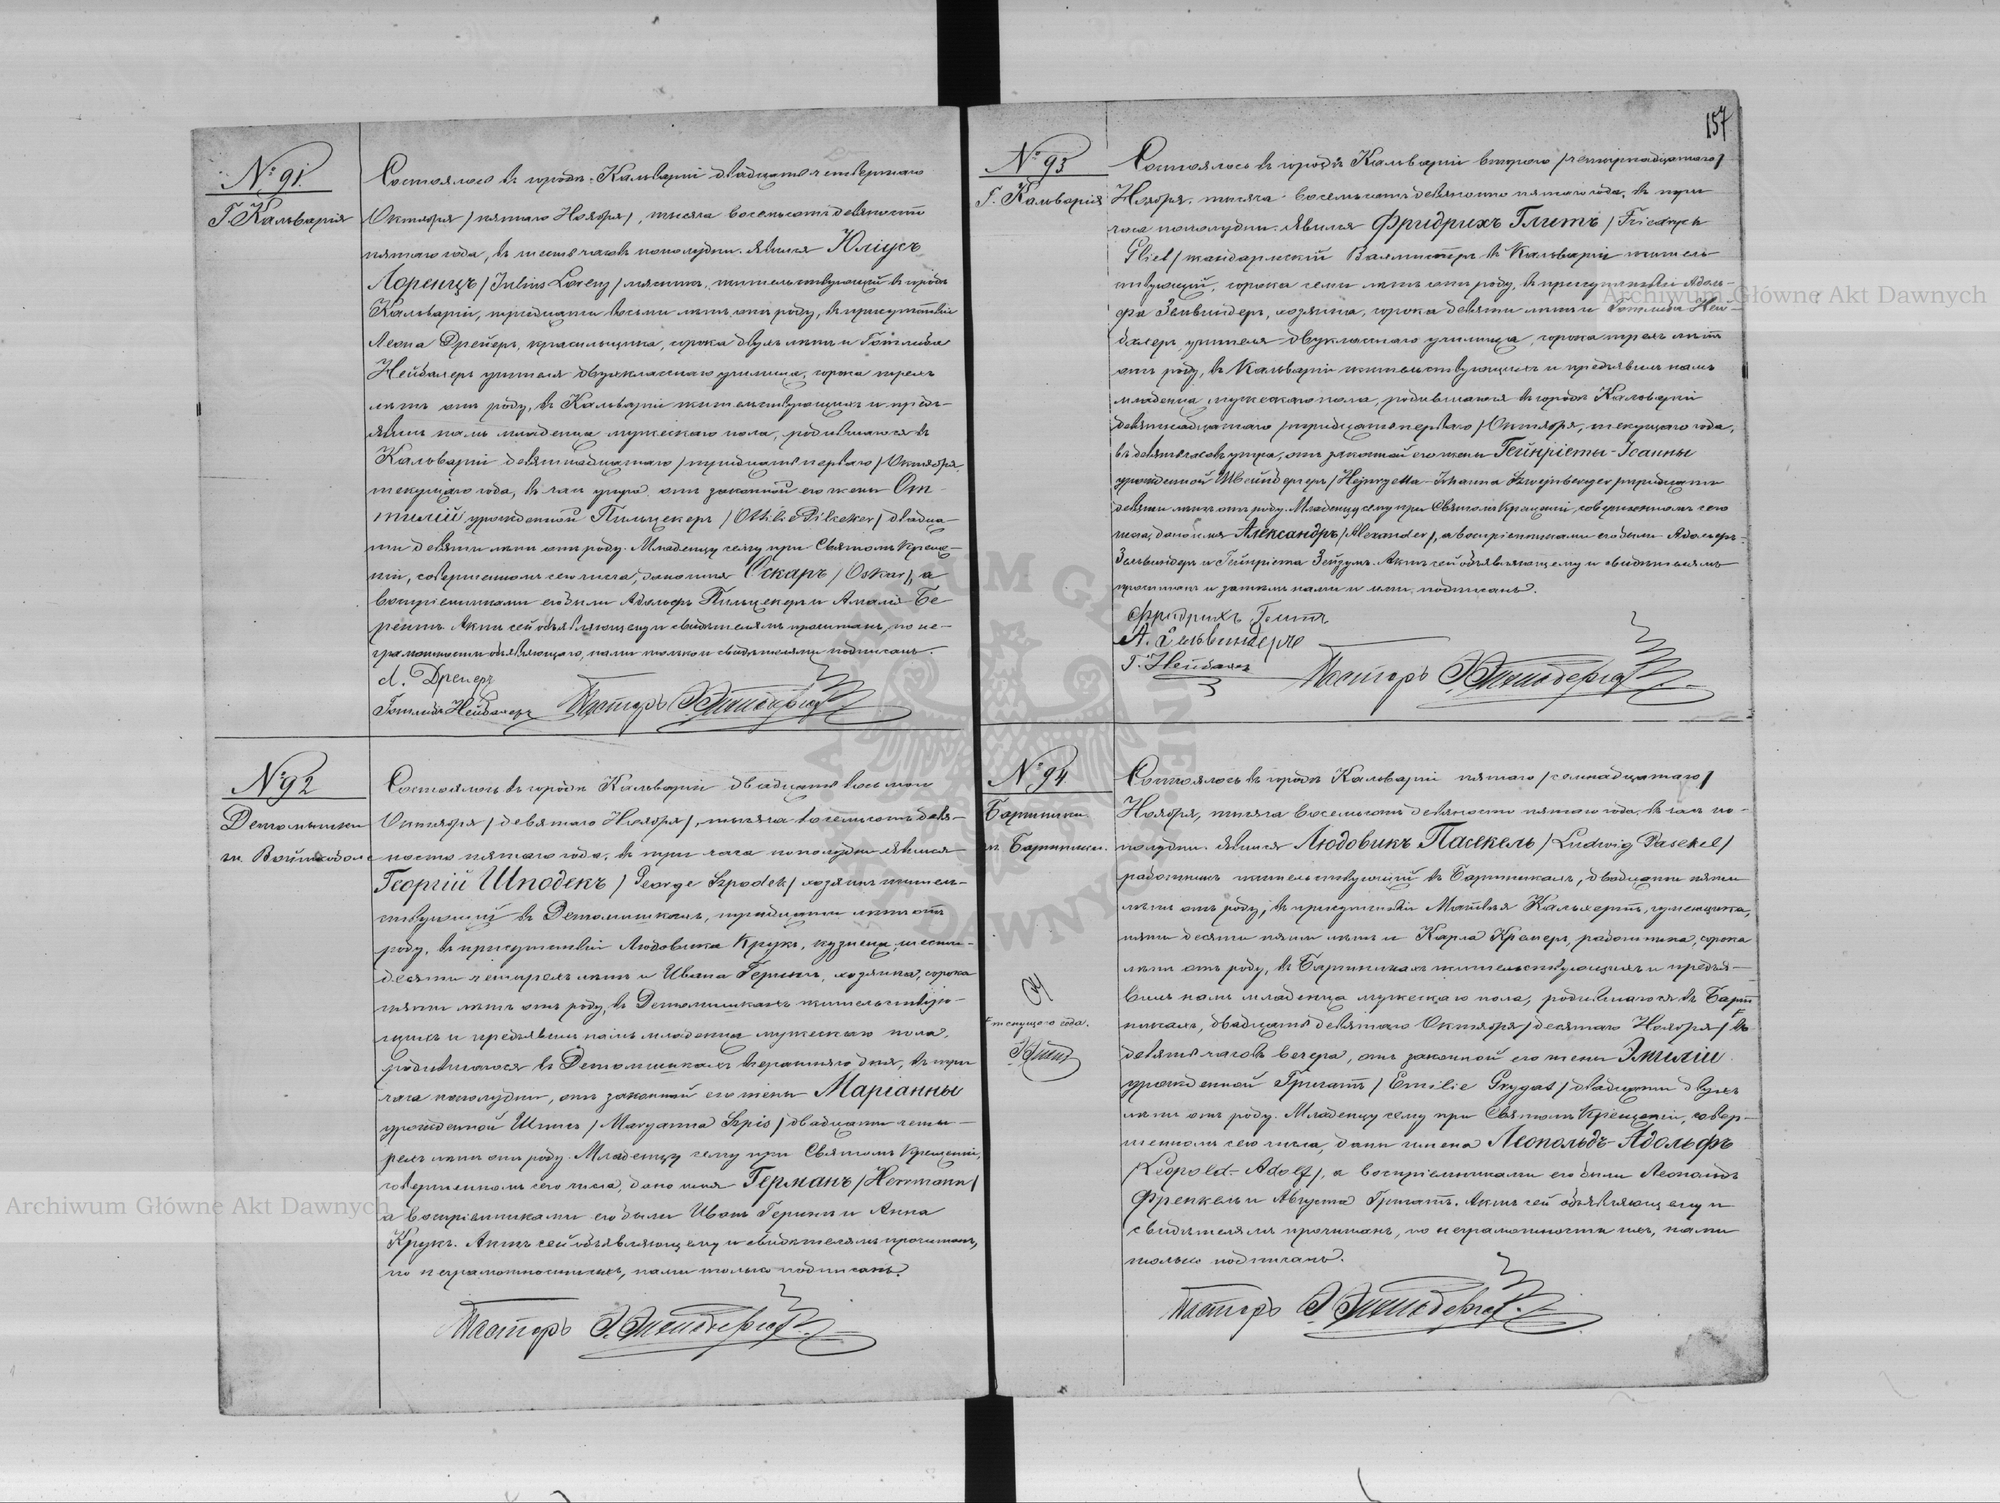 157
№ 91.
Г. Кальварія
Состоялось въ городѣ Кальваріи двадцать четвертаго
Октября /пятаго Ноября/, тысяча восемьсотъ девяносто
пятаго года, въ шесть часовъ пополудни. Явился Юліусъ
Лоренцъ /Julius Lorenz/ жительствующій въ городѣ
Кальваріи, тридцати восьми лѣтъ отъ роду, въ присутствіи
Леона Дрейеръ, красильщика, сорока двухъ лѣтъ и Готлиба
Нейбахеръ учителя двухкласснаго училища, сорока трехъ
лѣтъ отъ роду, въ Кальваріи жительствующихъ и предъ-
явилъ намъ младенца мужескаго пола, родившагося въ
Кальваріи девятнадцатаго /тридцать перваго/ Октября
текущаго года, въ часъ утра, отъ законной его жены От-
тиліи урожденной Пильцекеръ /Ottilie Pilceker/ двадца-
ти девяти лѣтъ отъ роду. Младенцу сему при Святомъ Креще-
ніи, совершенномъ сего числа, дано имя Оскаръ /Oskar/, а
воспріемниками его были Адольфъ Пильцекеръ и Амалія Бе-
рентъ. Актъ сей объявляющему и свидѣтелямъ прочитанъ, по не-
грамотности объявляющаго, нами только и свидѣтелями подписанъ.
Л. Дрейеръ
Готлибъ Нейбахеръ Пасторъ
№ 92
Детомышки
гм.
Состоялось въ городѣ Кальваріи двадцать восьмого
Октября /девятаго Ноября/, тысяча восемьсотъ девя-
носто пятаго года, въ три часа пополудни явился
Георгій Шподекъ /George Szpodek/ хозяинъ житель-
ствующій въ Детомышкахъ, тридцати лѣтъ отъ
роду, въ присутствіи Людовика Крукъ, кузнеца, шести-
десяти четырехъ лѣтъ и Ивана Герингъ, хозяина, сорока
пяти лѣтъ отъ роду, въ Детомышкахъ жительствую-
щихъ и предъявилъ намъ младенца мужескаго пола,
родившагося въ Детомышкахъ вчерашняго дня, въ три
часа пополудни, отъ законной его жены Маріанны
урожденной Шписъ /Maryanna Szpis/ двадцати четы-
рехъ лѣтъ отъ роду. Младенцу сему при Святомъ Крещеніи,
совершенномъ сего числа, дано имя Германъ /Herrmann/
а воспріемниками его были Иванъ Герингъ и Анна
Крукъ. Актъ сей объявляющему и свидѣтелямъ прочитанъ,
по неграмотности ихъ, нами только подписанъ.
Пасторъ
№ 93
Г. Кальварія
Состоялось въ городѣ Кальваріи второго /четырнадцатаго/
Ноября, тысяча восемьсотъ девяносто пятаго года, въ три
часа пополудни. Явился Фридрихъ Глитъ /Friedrych
Gliet/ жандармскій Вахмистръ въ Кальваріи житель-
ствующій, сорока семи лѣтъ отъ роду, въ присутствіи Адоль-
фа Зельвиндеръ, хозяина, сорока девяти лѣтъ и Готлиба Ней-
бахеръ, учителя двукласснаго училища, сорока трехъ лѣтъ
отъ роду, въ Кальваріи жительствующихъ и предъявилъ намъ
младенца мужескаго пола, родившагося въ городѣ Кальваріи
девятнадцатаго /тридцать перваго/ Октября, текущаго года,
въ девять часовъ утра, отъ законной его жены Гейнріеты-Іоанны
урожденной Швейнбергеръ /Hejnryetta-Johanna Szwejnberger/ тридцати
девяти лѣтъ отъ роду. Младенцу сему при Святомъ Крещеніи, совершенномъ сего
числа, дано имя Александръ /Alexander/, а воспріемниками его были Адольфъ
Зельвиндеръ и Гейнріета Актъ сей объявляющему и свидѣтелямъ
прочитанъ и затѣмъ нами и ими подписанъ.
Фридрихъ Глитъ
А. Зельвиндеръ
Г. Нейбахеръ Пасторъ
№ 94
Бартники
гм. Бартники.
текущаго года.
Состоялось въ городѣ Кальваріи пятаго /семнадцатаго/
Ноября, тысяча восемьсотъ девяносто пятаго года, въ часъ по-
полудни. Явился Людовикъ Пасекель /Ludwig Pasekel/
работникъ жительствующій въ Бартникахъ, двадцати пяти
лѣтъ отъ роду, въ присутствіи Матвѣя
пятидесяти пяти лѣтъ и Карла Кремеръ, работника, сорока
лѣтъ отъ роду, въ Бартникахъ жительствующихъ и предъя-
вилъ намъ младенца мужескаго пола, родившагося въ Барт-
никахъ, двадцать девятаго Октября /десятаго Ноября/ въ
девять часовъ вечера, отъ законной его жены Эмиліи
урожденной Григатъ /Emilie Grygat/ двадцати двухъ
лѣтъ отъ роду. Младенцу сему при Святомъ Крещеніи, совер-
шенномъ сего числа, даны имена Леопольдъ-Адольфъ
/Leopold-Adolf/, а воспріемниками его были Леопольдъ
Френкель и Августа Григатъ. Актъ сей объявляющему и
свидѣтелямъ прочитанъ, по неграмотности ихъ, нами
только подписанъ.
Пасторъ
Archiwum Główne Akt Dawnych
Archiwum Główne Akt Dawnych